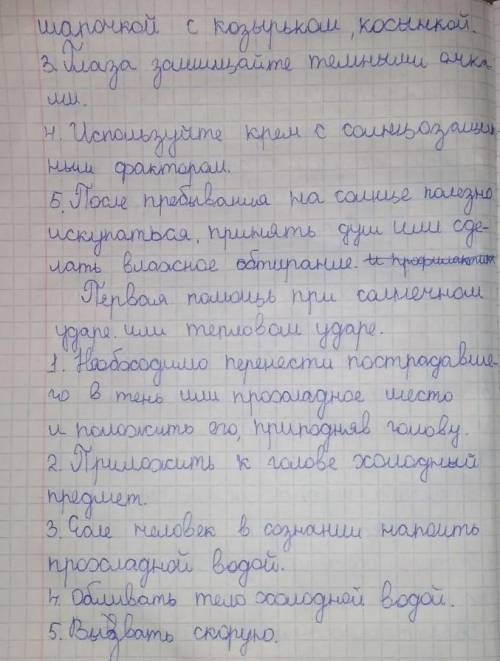 шапочкой с козырьком, косынкой.
3. Глаза защищайте темными очка-
ми.
4. Используйте крем с солнцозащит
ным фактором.
5. После пребывания на солнце полезно
искупаться, принять душ или сде-
лать влажное обтирание. и профилактик
Первая помощь при солнечном
ударе или тепловом ударе.
1. Необходимо перенести пострадавше-
го в тень или прохладное место
и положить его, приподняв голову.
2. Приложить к голове холодный
предмет.
3. Если человек в сознании напоить
прохладной водой.
4. Обливать тело холодной водой.
5. Вызвать скорую.